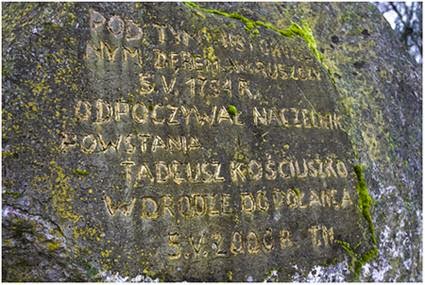 POD TYM
NYM DĘBEM
5.V. 1794 R.
ODPOCZYWAŁ NACZELNIK
POWSTANIA
TADEUSZ KOŚCIUSZKO
W DRODZE DO POŁAŃCA
5.V. 2000 R. TN.